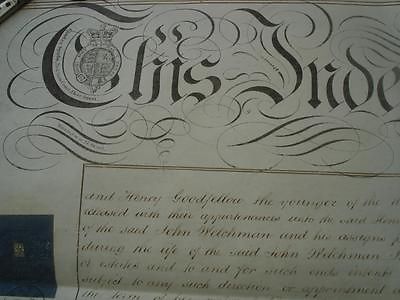 This Inde
and Henry Goodfellow the younger of the
released with their appurtenances unto the said Hen
of the said John Welchman and his assigns
during the life of the said John Welchman
or estates and to and for such ends intents
subject to any such direction or appointment
the term of